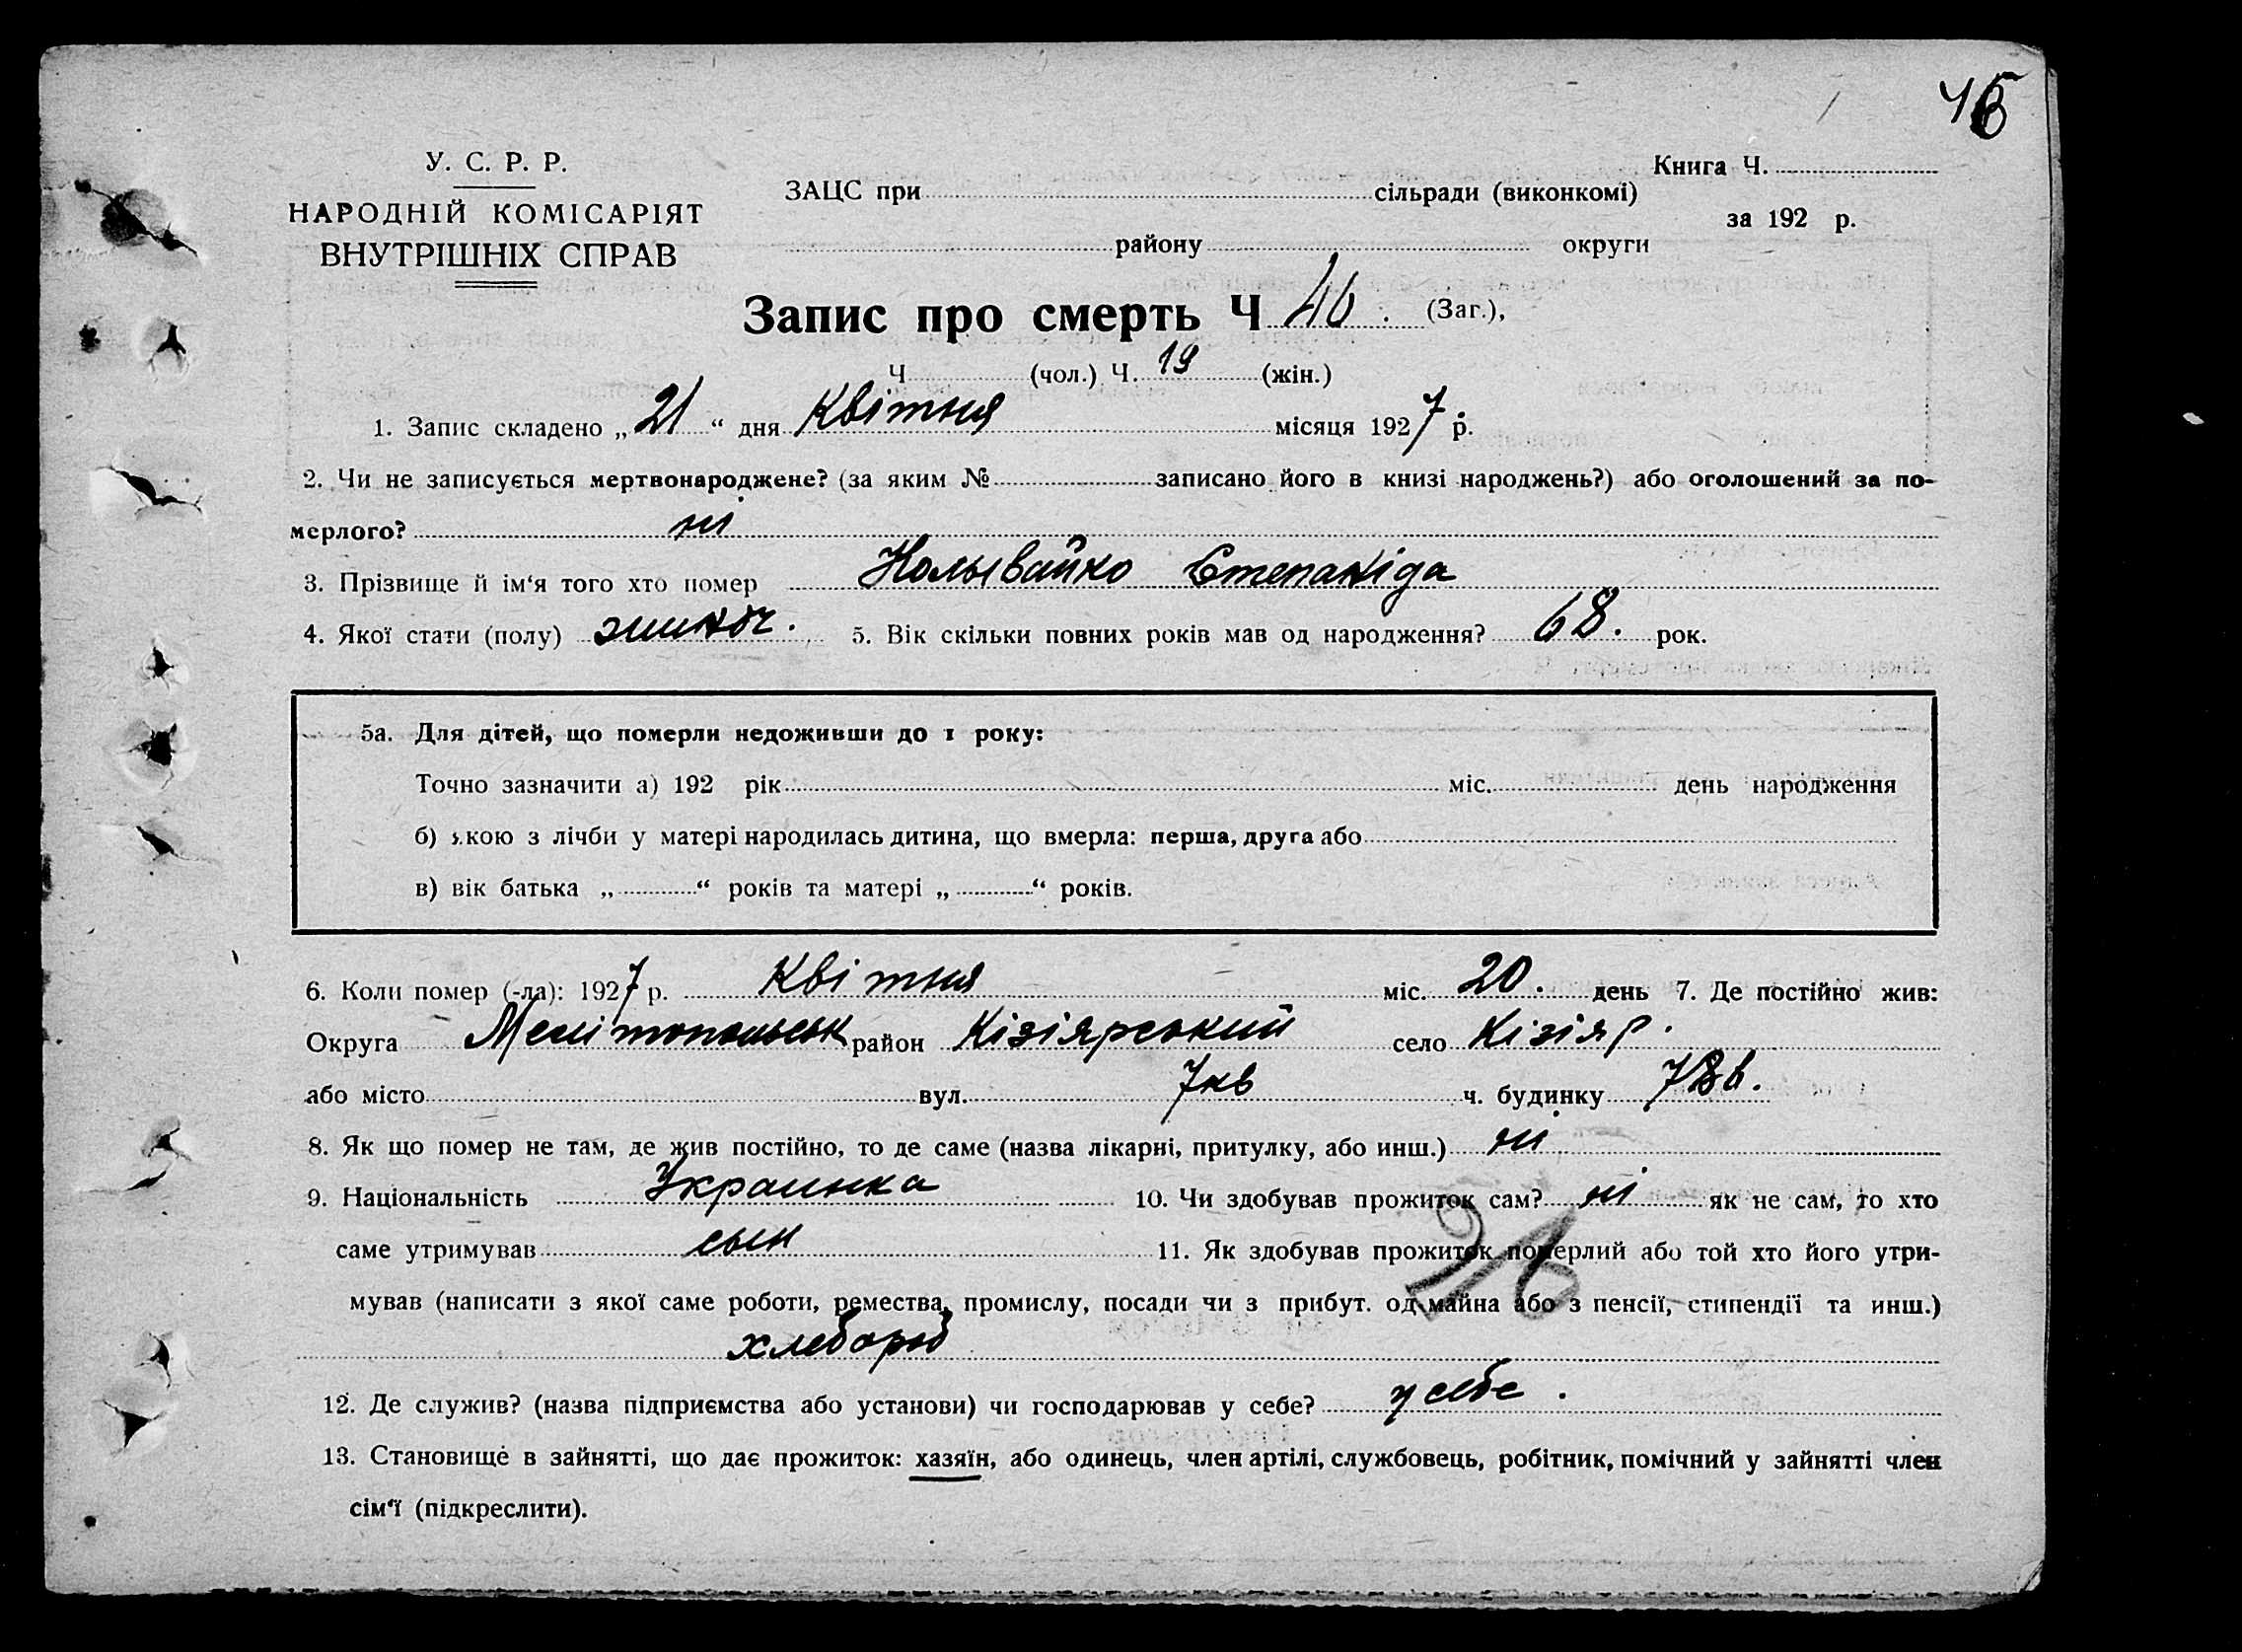 У. С. Р. Р.
НАРОДНІЙ КОМІСАРІЯТ
ВНУТРІШНІХ СПРАВ
ЗАЦС при сільради (виконкомі)
району округи
Книга Ч.
за 192 р.
Запис про смерть Ч 46. (Заг.),
Ч (чол.) Ч. 19 (жін.)
1. Запис складено „21“ дня Квітня місяця 1927 р.
2. Чи не записується мертвонароджене? (за яким № записано його в книзі народжень?) або оголошений за по-
мерлого? ні
3. Прізвище й ім‘я того хто помер Колывайко Степаніда
4. Якої стати (полу) жиноч. 5. Вік скільки повних років мав од народження? 68. рок.
5а. Для дітей, що померли недоживши до 1 року:
Точно зазначити а) 192 рік міс. день народження
б) якою з лічби у матері народилась дитина, що вмерла: перша, друга або
в) вік батька „ “ років та матері „ “ років.
6. Коли помер (-ла): 1927 р. Квітня міс. 20. день 7. Де постійно жив:
Округа Мелітопольськ район Кізіярський село Кізіяр.
або місто вул. 7 кв ч. будинку
8. Як що помер не там, де жив постійно, то де саме (назва лікарні, притулку, або инш.) ні
9. Національність Украинка 10. Чи здобував прожиток сам? ні як не сам, то хто
саме утримував сын 11. Як здобував прожиток померлий або той хто його утри-
мував (написати з якої саме роботи, ремества, промислу, посади чи з прибут. од майна або з пенсії, стипендії та инш.)
хлебороб
12. Де служив? (назва підприємства або установи) чи господарював у себе? у себе.
13. Становище в зайнятті, що дає прожиток: хазяїн, або одинець, член артілі, службовець, робітник, помічний у зайнятті член
сім‘ї (підкреслити).